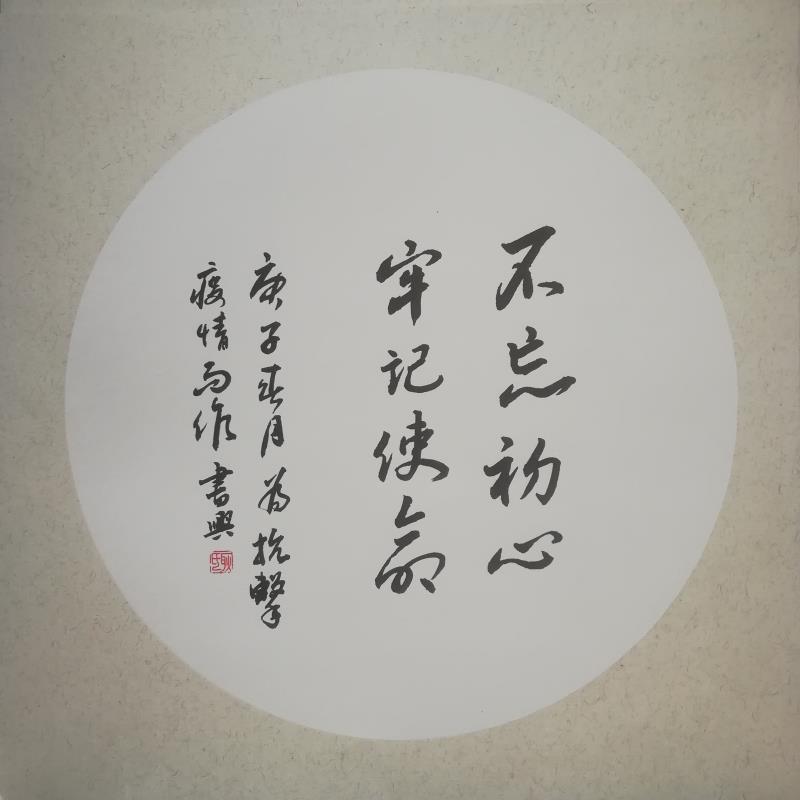 不忘初心
牢记使命
庚子春月为抗擊
疫情而作書興